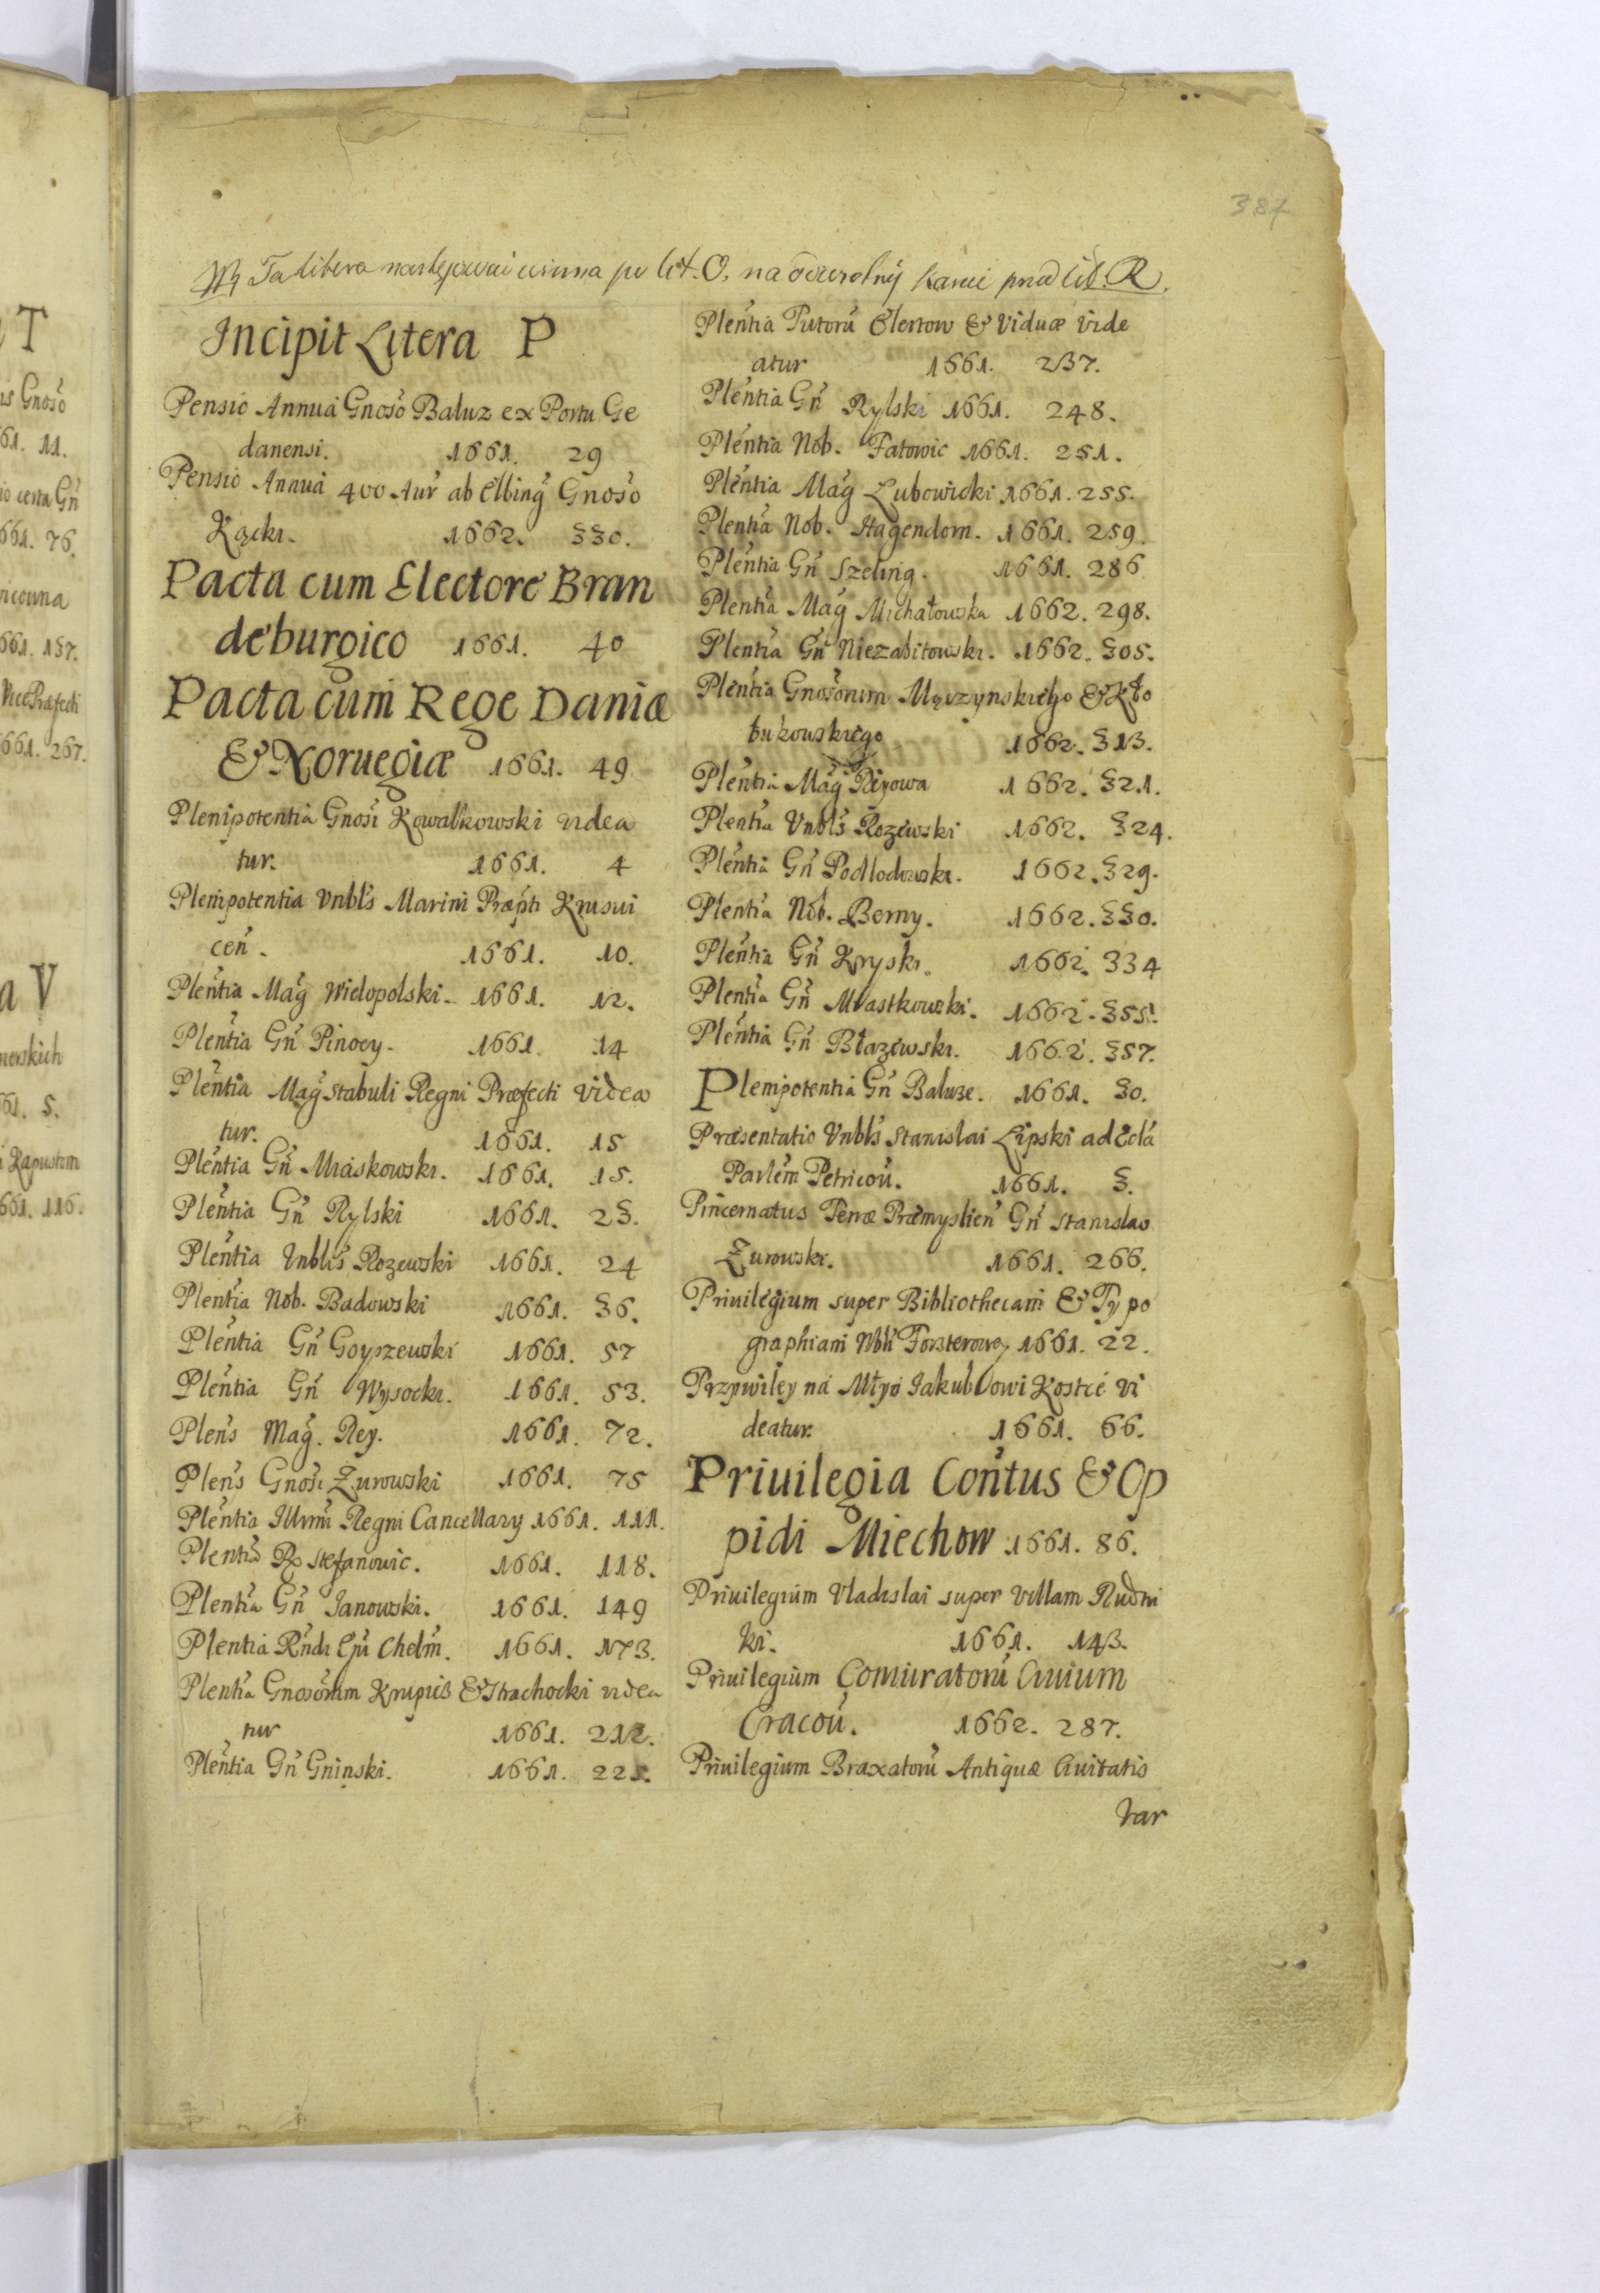 387
Ta litera następować winna po lit. O, na odwrotnej karcie przed lit. R.
Incipit Litera P
Pensio Annua Gnoso Baluz ex Portu Ge
danensi. 1661. 29
Pensio Annua 400 Aur ab Elbing Gnoso
Kącki. 1662. 330.
Pacta cum Electore Bran
deburgico 1661. 40
Pacta cum Rege Daniæ
& Noruegiæ 1661. 49
Plenipotentia Gnosi Kowalkowski videa
tur. 1661. 4
Plenipotentia Vnbls Marini Præpti Krusui
cen. 1661. 10.
Plentia Mag Wielopolski. 1661. 12.
Plentia Gn Pinocy. 1661. 14
Plentia Mag Stabuli Regni Præfecti videa
tur. 1661. 15
Plentia Gn Miaskowski. 1661. 15.
Plentia Gn Rylski 1661. 23.
Plentia Vnblis Rozewski 1661. 24
Plentia Nob. Badowski 1661. 36.
Plentia Gn Goyszewski 1661. 57
Plentia Gn Wysocki. 1661. 53.
Plens Mag. Rey. 1661. 72.
Plens Gnosi Żurowski 1661. 75
Plentia Illmi Regni Cancellary 1661. 111.
Plentia R Stefanowic. 1661. 118.
Plentia Gn Janowski. 1661. 149
Plentia Rndi Epi Chelm. 1661. 173.
Plentia Gnosorum Krupis & Strachocki videa
tur 1661. 212.
Plentia Gn Gninski. 1661. 225.
Plentia Tutoru Elertow & Viduæ vide
atur 1661. 237.
Plentia Gn Rylski 1661. 248.
Plentia Nob. Fatowic 1661. 251.
Plentia Mag Lubowicki 1661. 255.
Plentia Nob. Hagendorn. 1661. 259.
Plentia Gn Szeling. 1661. 286
Plentia Mag Michałowska 1662. 298.
Plentia Gn Niezabitowski. 1662. 305.
Plentia Gnosorum Męczynskiego & Kło
bukowskiego 1662. 313.
Plentia Mag Reyowa 1662. 321.
Plentia Vnbls Rozewski 1662. 324.
Plentia Gn Podlodowski. 1662. 329.
Plentia Nob. Berny. 1662. 330.
Plentia Gn Kryski. 1662. 334
Plentia Gn Miastkowski. 1662. 355.
Plentia Gn Błazewski. 1662. 357.
Plenipotentia Gn Baluze. 1661. 30.
Præsentatio Vnbls Stanislai Lipski ad Ecla
Parlem Petricou. 1661. 3.
Pincernatus Terræ Præmyslien Gn Stanislao
Żurowski. 1661. 266.
Priuilegium super Bibliothecam & Typo
graphiam Nbli Forsterowey 1661. 22.
Przywiley ná Młyn Iakubowi Kostce vi
deatur. 1661. 66.
Priuilegia Contus & Op
pidi Miechow 1661. 86.
Priuilegium Vladislai super Villam Rudni
ki. 1661. 143.
Priuilegium Comuratoru Ciuium
Cracou. 1662. 287.
Priuilegium Braxatoru Antiquæ Ciuitatis
Var
T
Gnoso
61. 11.
certa Gn
661. 76.
661. 137.
Vice Præfecti
661. 267.
a V
61. 5.
Kapustom
661. 116.